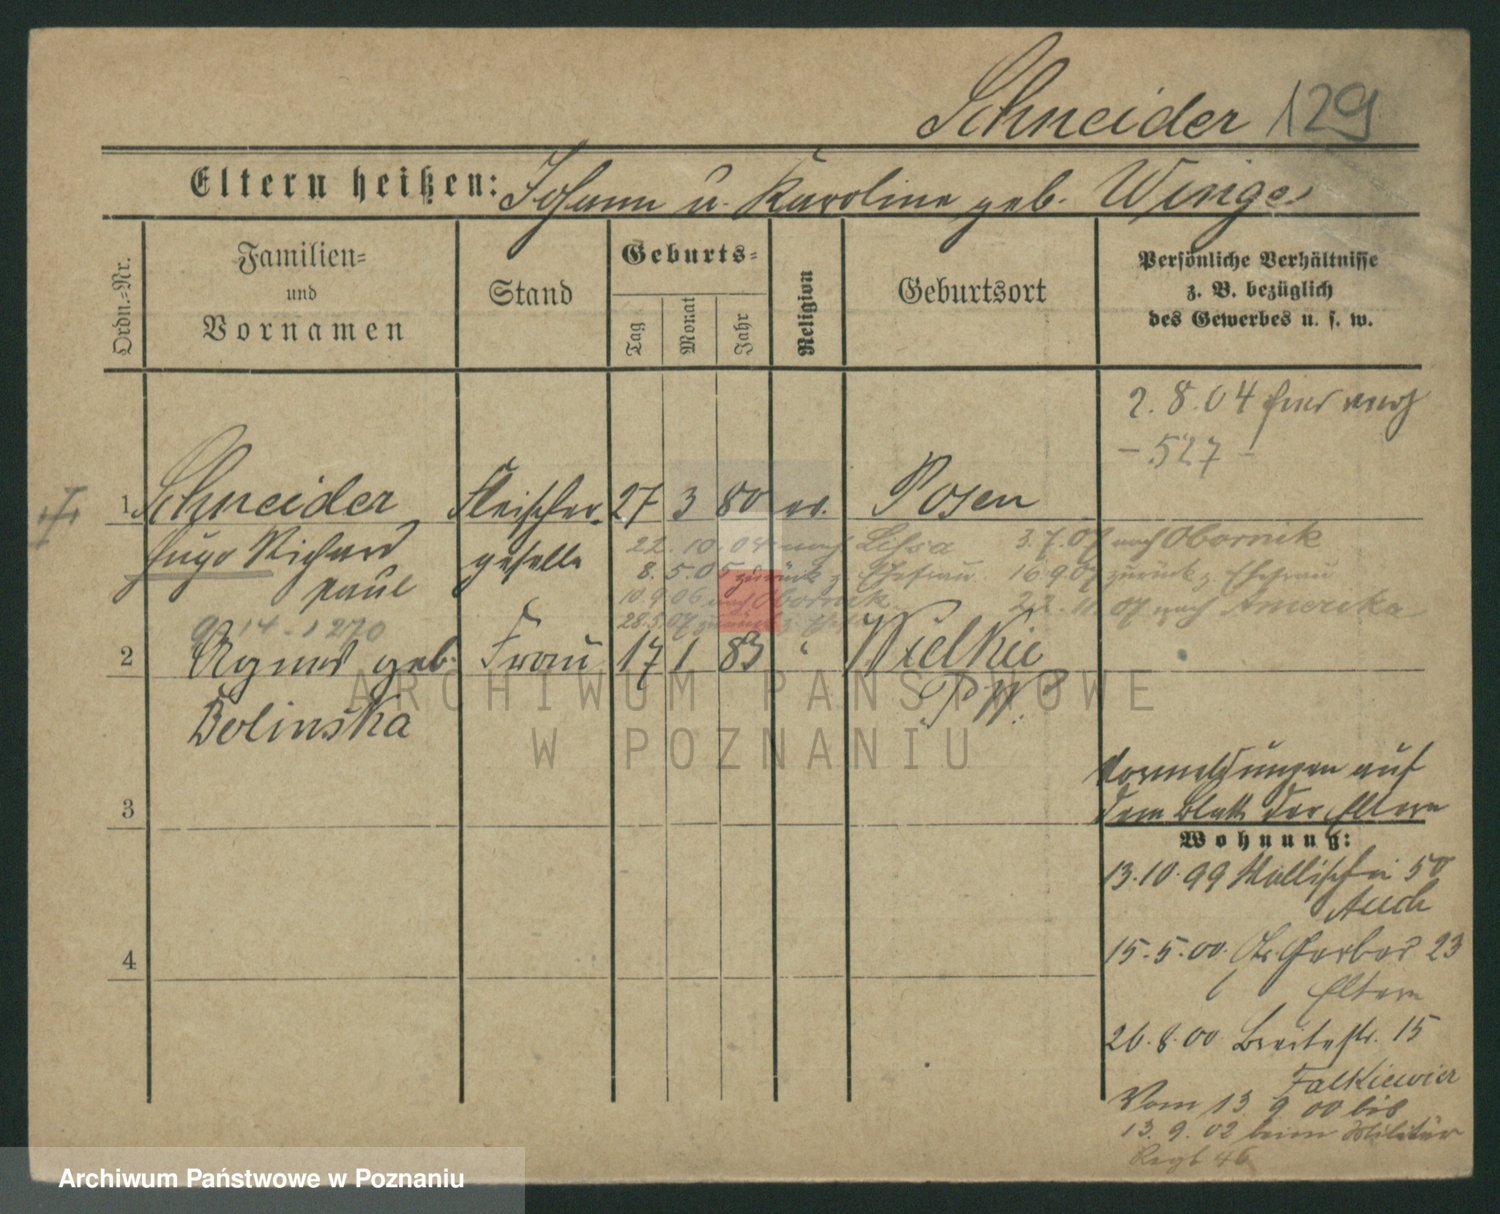 Schneider 129
Eltern heißen: Johann u. Karoline geb. Winge
Ordn.=Nr.
Familien=
und
Vornamen
Stand
Geburts=
Tag
Monat
Jahr
Religion
Geburtsort
Persönliche Verhältnisse
z. B. bezüglich
des Gewerbes u. s. w.
2. 8. 04
- 527 -
1 Schneider Fleischer- 27 3 80 ev. Posen
Hugo Richard geselle
Paul
22. 10. 04 nach Lissa 3.7.07 nach Obornik
8. 5. 05 zurück z. Ehefrau 16 9.07 zurück z. Ehefrau
10 9 06 nach Obornik 22. 11. 07 nach Amerika
28.3.07 zurück z.
2 Agnes geb. Frau 17 1 83 " Wielkie
Bolinska
3
Vormeldungen auf
dem Blatt der Eltern
Wohnung:
13.10.99 Wallischei 50
15.5.00. Gr. Gerber 23
4
Eltern
26.8.00 Breitestr. 15
Falkiewicz
Vom 13 9 00 bis
13. 9. 02 beim Militär
Regt 46
ARCHIWUM PAŃSTWOWE
W POZNANIU
Archiwum Państwowe w Poznaniu